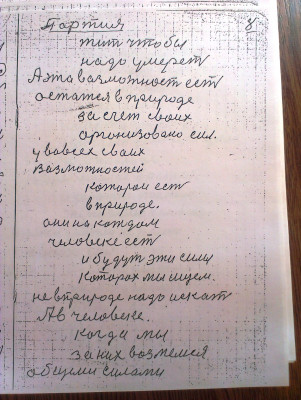 Партия 8
жит чтобы
надо умереть
А эта возможност ест
остатся в природе
за счет своих
организовано сил.
у во всех своих
возможностей
которои ест
в природе.
они на каждом
человеке ест
и будут эти силы
которах мы ищем.
не в природе надо искат
А в человеке.
когда мы
за них возмемся
общими силами